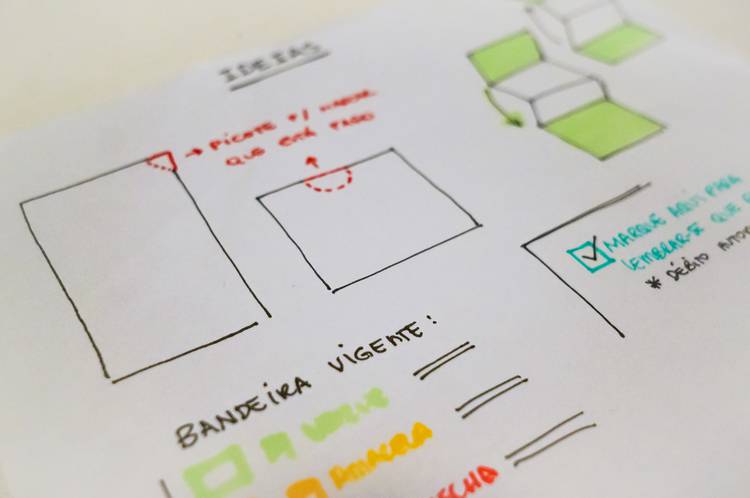 IDEIAS
→ PICOTE P/ MARCAR
QUE ESTÁ PAGO
MARQUE AQUI PARA
LEMBRAR-SE QUE
* DÉBITO AUTOM
BANDEIRA VIGENTE!
VERDE
AMARELA